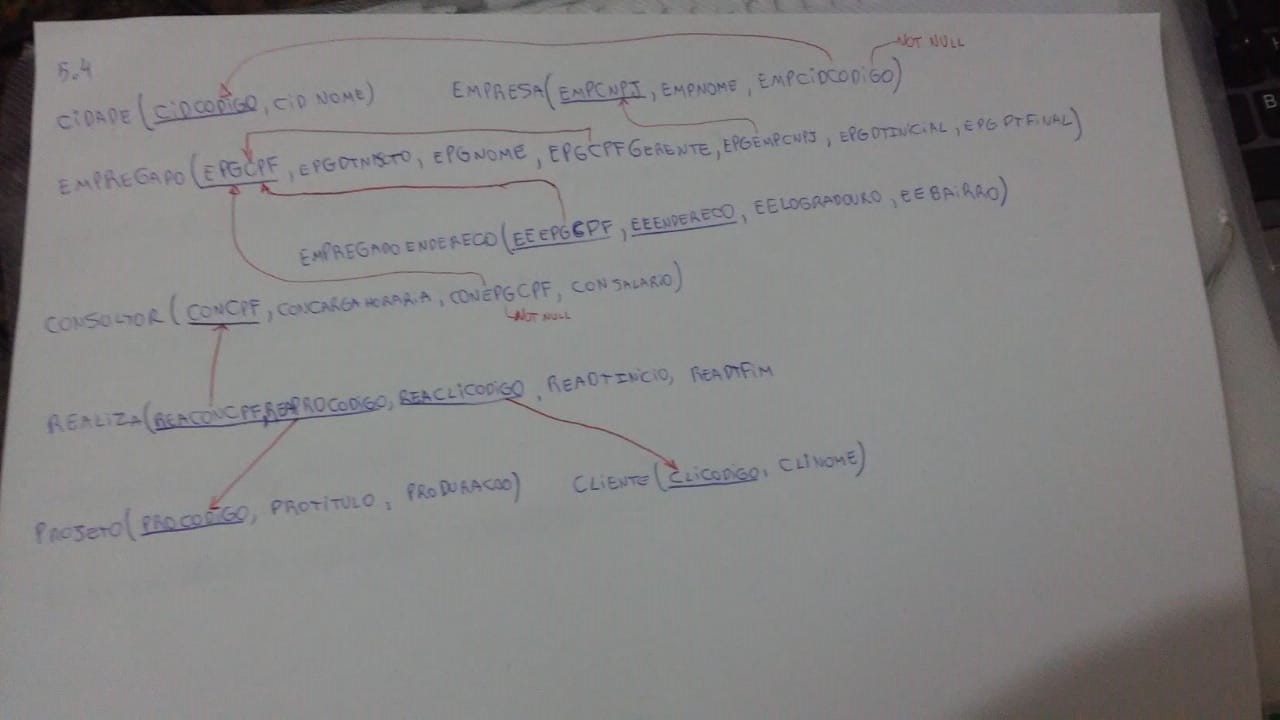 5.4
NOT NULL
CIDADE (CIDCODIGO, CIDNOME) EMPRESA (EMPCNPJ, EMPNOME, EMPCIDCODIGO)
EMPREGADO (EPGCPF, EPGDTNASCTO, EPGNOME, EPGCPFGERENTE, EPGEMPCNPJ, EPGDTINICIAL, EPGDTFINAL)
EMPREGADOENDERECO (EEEPGCPF, EEENDERECO, EELOGRADOURO, EEBAIRRO)
CONSULTOR (CONCPF, CONCARGAHORARIA, CONEPGCPF, CONSALARIO)
NOT NULL
REALIZA (REACONCPF, REAPROCODIGO, REACLICODIGO, READTINICIO, READTFIM
PROJETO (PROCODIGO, PROTITULO, PRODURACAO) CLIENTE (CLICODIGO, CLINOME)